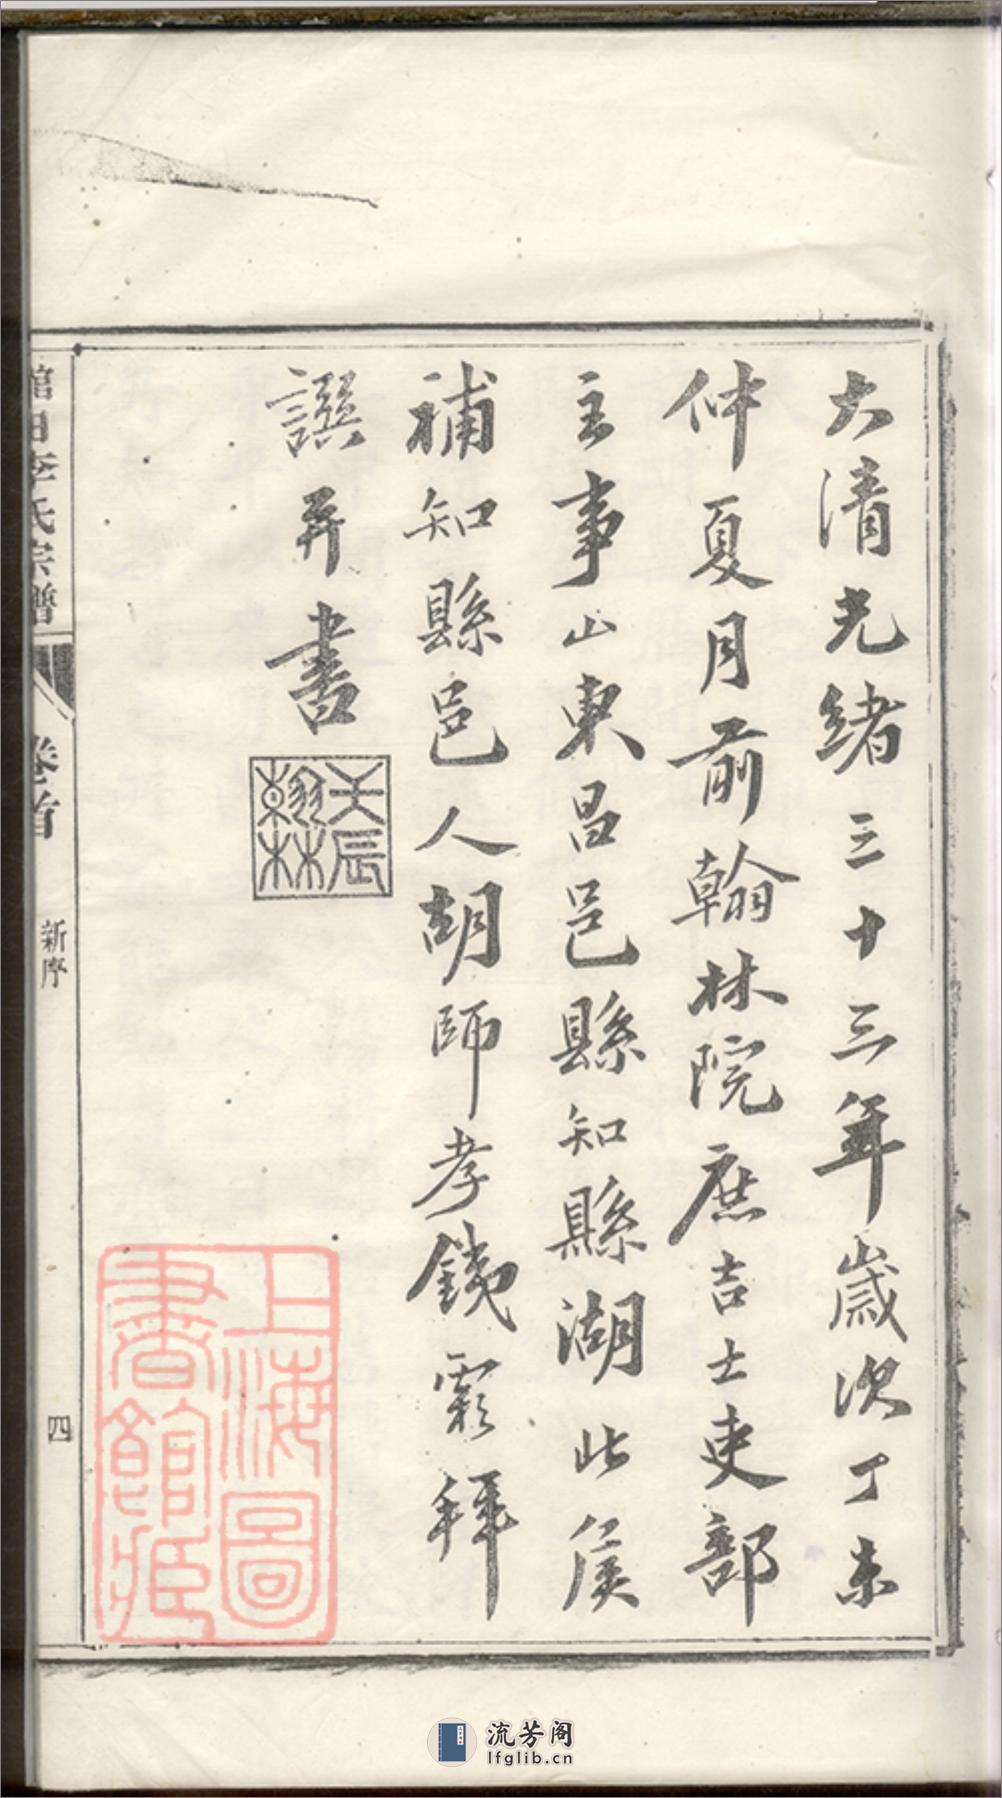 大清光緒三十三年歲次丁未
仲夏月前翰林院庶吉士吏部
主事山東昌邑縣知縣湖北候
補知縣邑人胡師孝鐵彩拜
譔并書
壬辰翰林
李氏宗譜
卷首
新序
四
上海圖書館藏
流芳阁
lfglib.cn